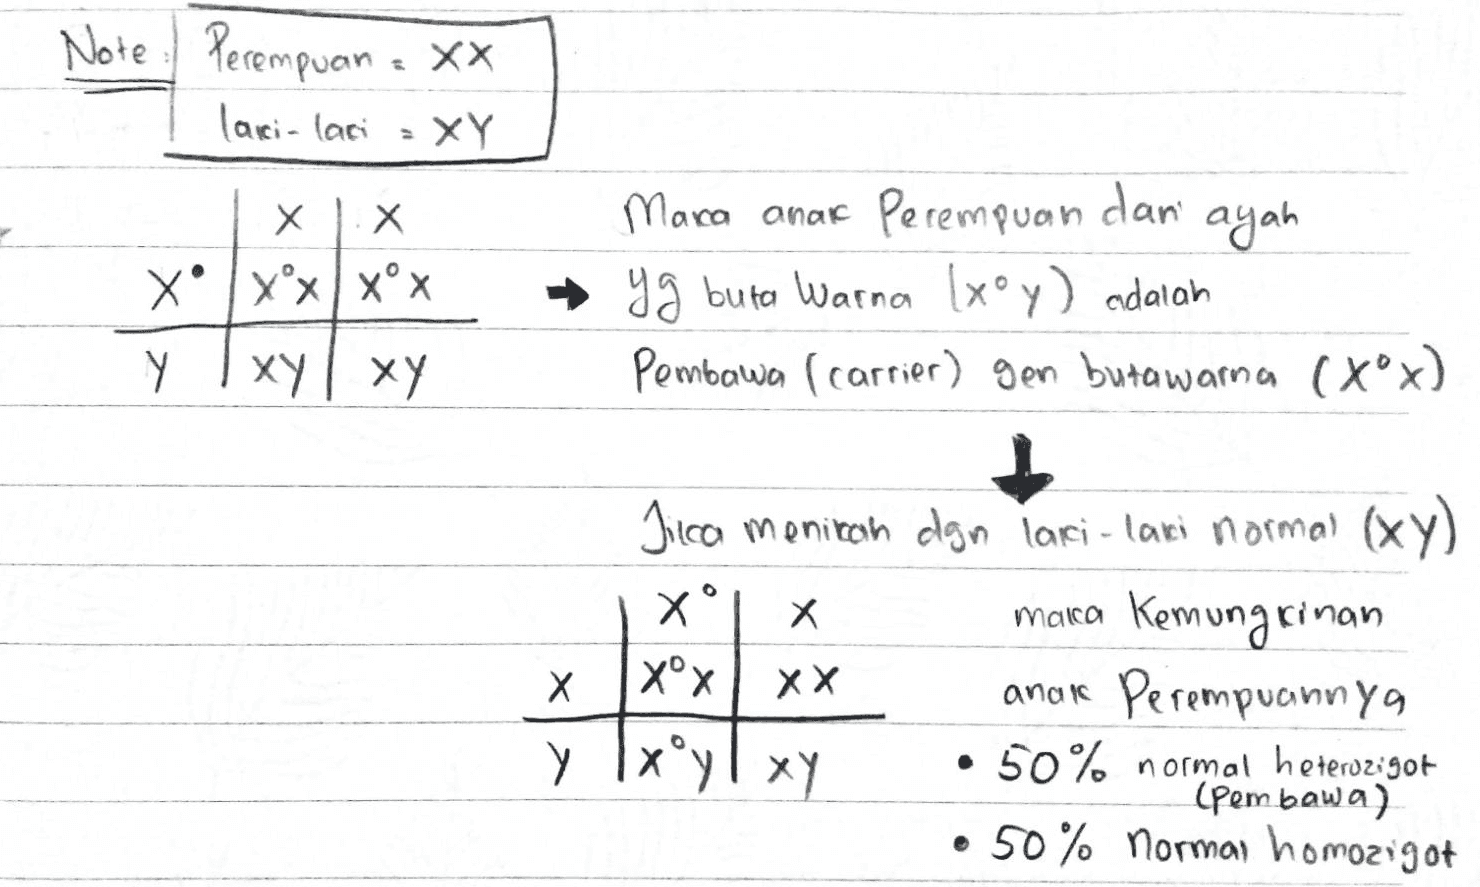 Note : Perempuan = XX
laki-laki = XY
X X
X• X°X X°X
Y XY XY
Maka anak Perempuan dari ayah
➡ yg buta Warna (X°Y) adalah
Pembawa (carrier) gen butawarna (X°X)
Jika menikah dgn laki-laki normal (XY)
X° X
X X°X XX
Y X°Y XY
maka Kemungkinan
anak Perempuannya
• 50% normal heterozigot
(Pembawa)
• 50% Normal homozigot